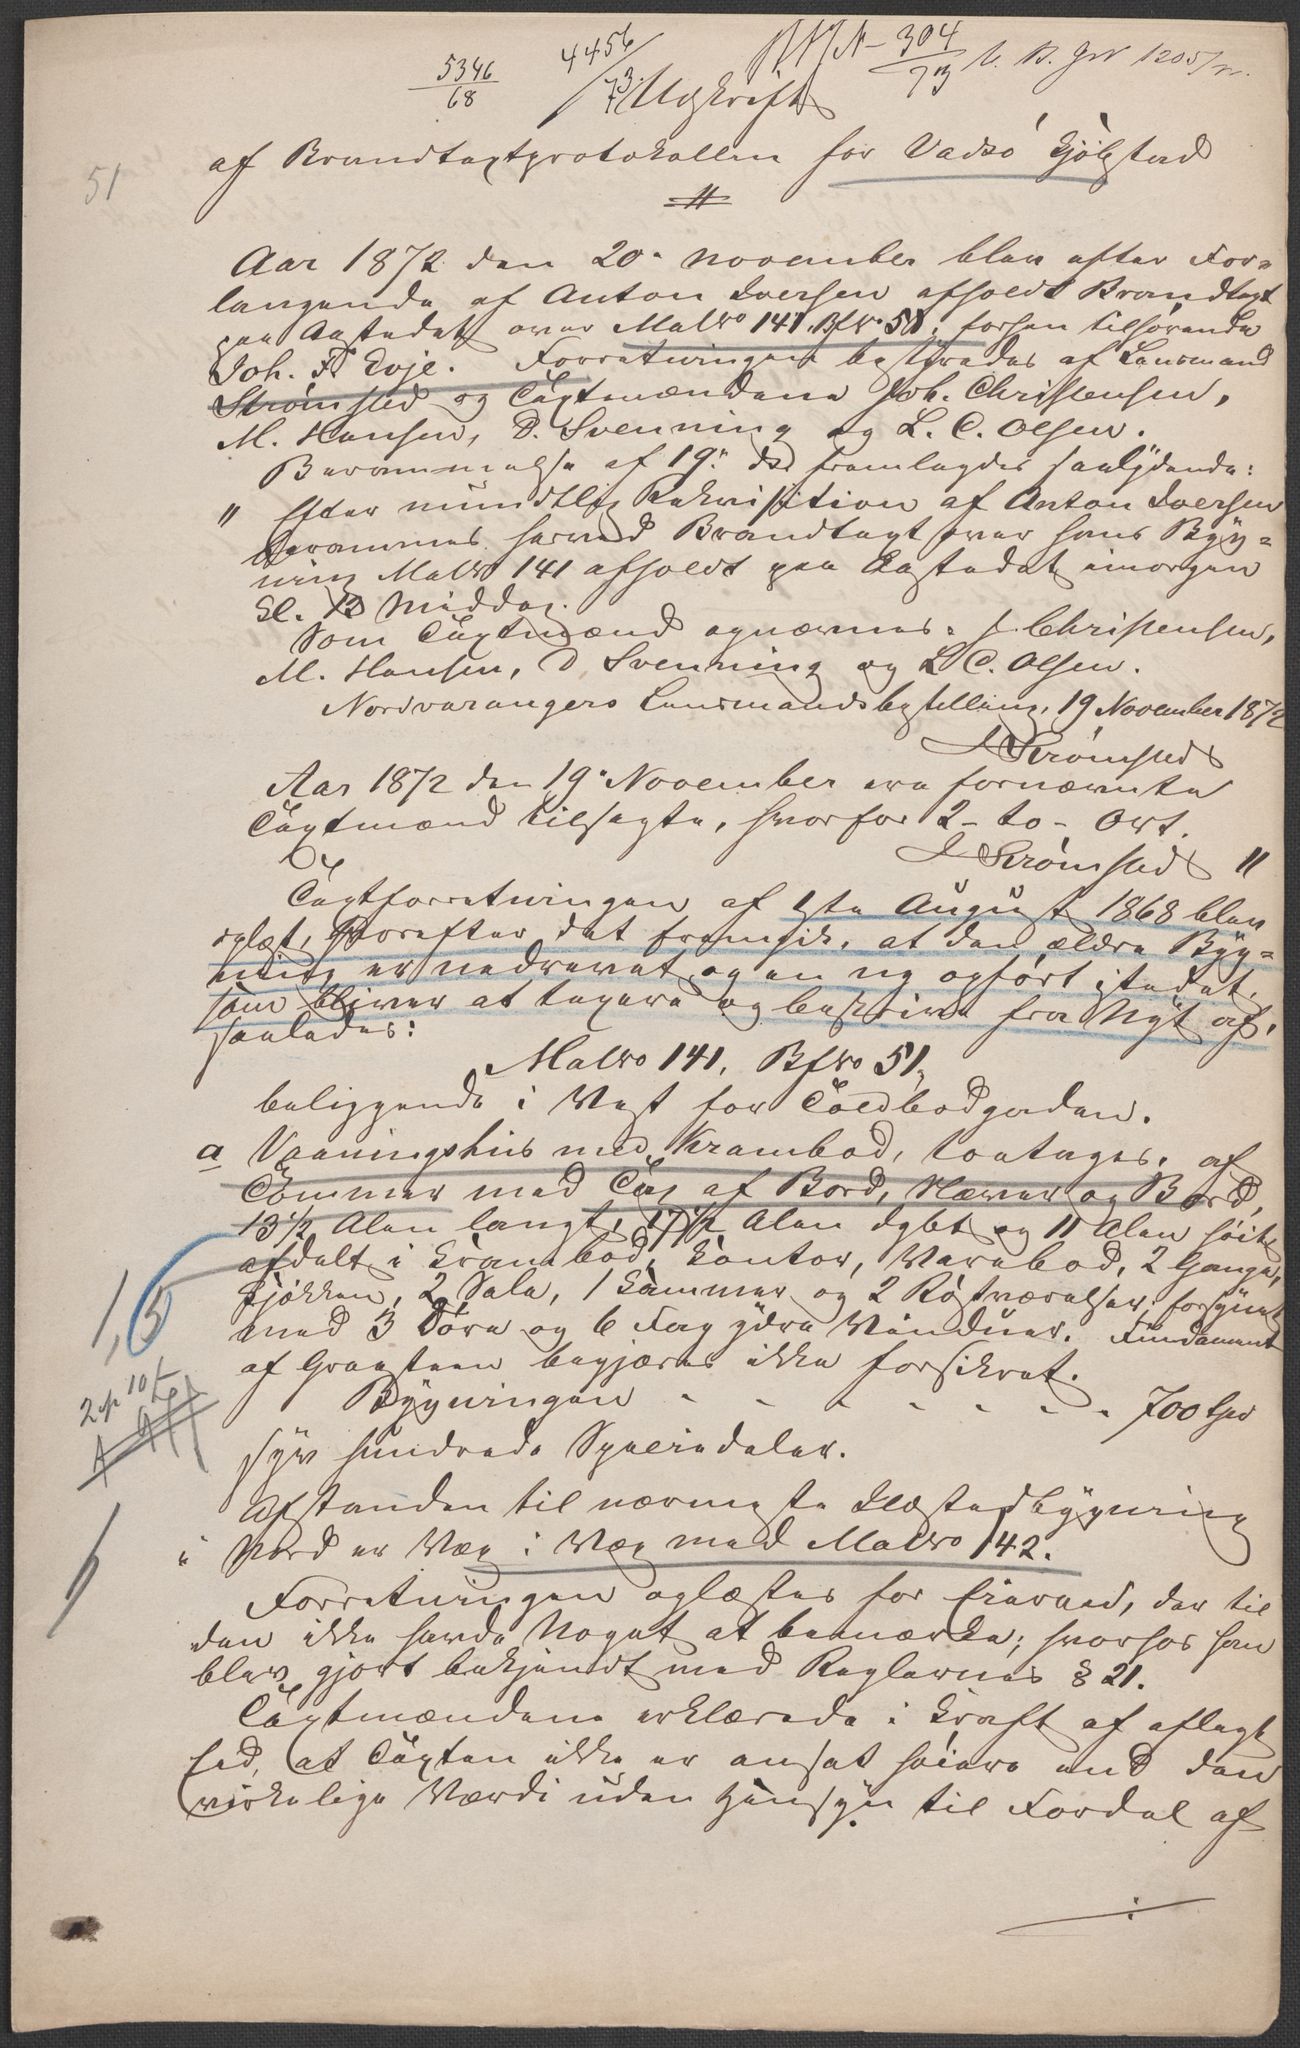 5346
68
4456
73.
304
73
Udskrift
af Brandtaxtprotokollen for Vadsö Kjöbstad
51
Aar 1872 den 20. November blev efter For-
langende af Anton Iversen afholdt Brandtaxt
paa Aastedet over Matr No 141. Bf No 51. forhen tilhørende
Joh. F. Evje. Forretningen bestyredes af Lensmand
Strömsted og Taxtmændene Joh. Christensen,
M. Hansen, D. Svenning og L. C. Olsen.
Berammelse af 19. ds. fremlagdes saalydende:
" Efter mundtlig Rekvisition af Anton Iversen
berammes herved Brandtaxt over hans Byg-
ning Matr No 141 afholdt paa Aastedet imorgen
Kl. 12 Middag.
Som Taxtmænd opnævnes: J. Christensen,
M. Hansen, D. Svenning og L. C. Olsen.
Nordvarangers Lensmandsbestilling, 19 November 1872
J Strömsted
Aar 1872 den 19. November ere fornævnte
Taxtmænd tilsagte, hvorfor 2 - to - Ort.
J Strömsted "
Taxtforretningen af 1ste August 1868 blev
oplæst, hvorefter det fremgik, at den ældre Byg-
ning er nedrevet og en ny opført istedet,
som bliver at taxere og beskrive fra Nyt af,
saaledes:
Matr No 141. Bf No 51,
beliggende i Vest for Toldbodgaden.
a Vaaningshus med Krambod, toetages, af
Tömmer med Tag af Bord, Næver og Bord,
13 1/2 Alen langt, 17 1/2 Alen dybt og 11 Alen höit,
afdelt i Krambod, Kontor, Varebod, 2 Gange,
Kjökken, 2 Sale, 1 Kammer og 2 Röstværelser, forsynet
med 3 Döre og 6 Fag ydre Vinduer. Fundament
af Graasteen begjæres ikke forsikret.
Bygningen - - - - - - - 700 Spd
syv hundrede Speciedaler.
1,5
Afstanden til nærmeste Næstedbygning
i Nord er Væg i Væg med Matr No 142.
Forretningen oplæstes for Eieren, der til
den ikke havde Noget at bemærke; hvorhos han
blev gjort bekjendt med Reglernes § 21.
Taxtmændene erklærede i Kraft af aflagt
Eed, at Taxten ikke er ansat höiere end den
virkelige Værdi uden Hensyn til Fordel af